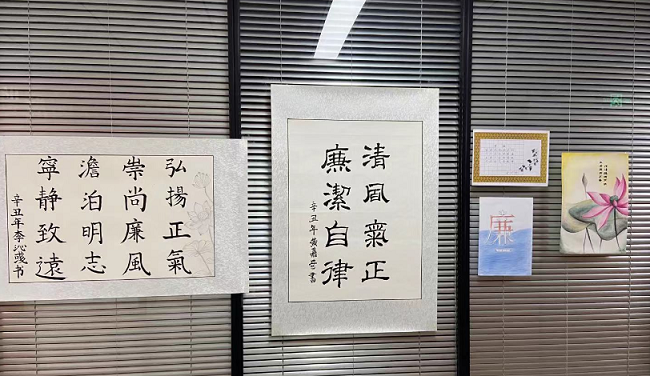 弘揚正氣
崇尚廉風
澹泊明志
寧静致遠
辛丑年李沁书
清風氣正
廉潔自律
辛丑年黄書
廉